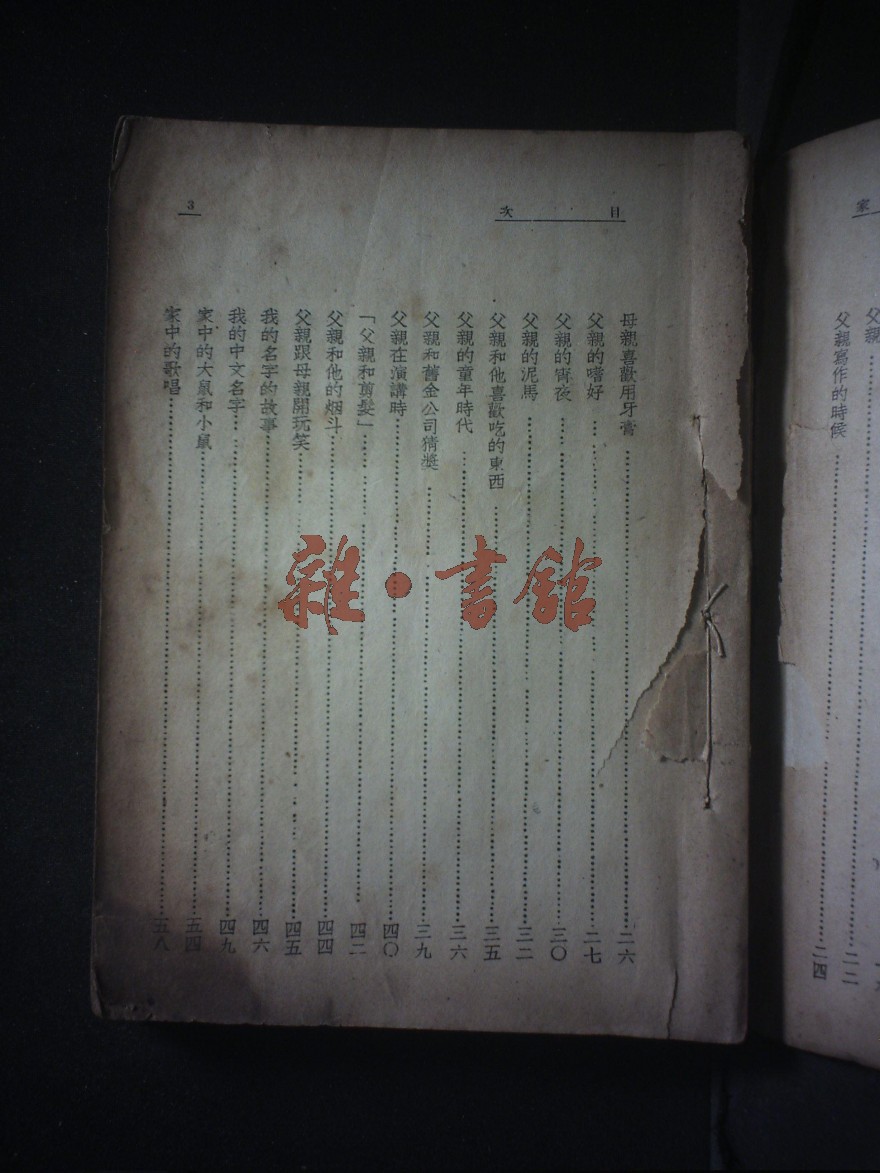 家
父親
二二
父親寫作的時候 二四
目 次
3
母親喜歡用牙膏 二六
父親的嗜好 二七
父親的宵夜 三〇
父親的泥馬 三二
父親和他喜歡吃的東西 三五
父親的童年時代 三六
父親和舊金公司猜獎 三九
父親在演講時 四〇
「父親和剪髮」 四二
父親和他的烟斗 四四
父親跟母親開玩笑 四五
我的名字的故事 四六
我的中文名字 四九
家中的大鼠和小鼠 五四
家中的歌唱 五八
雜·書館